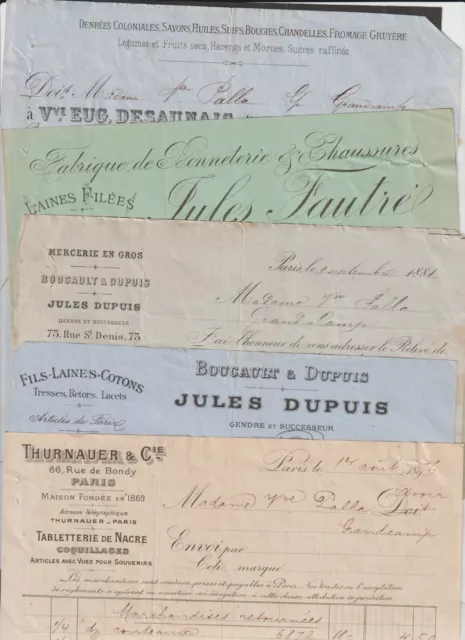 DENRÉES COLONIALES, SAVONS, HUILES, SUIFS, BOUGIES, CHANDELLES, FROMAGE GRUYÈRE
Légumes et Fruits secs, Harengs et Morues, Sucres raffinés
Doit Madame Vve Lalla à Grandcamp
à VVE EUG. DESAUNAIS
Fabrique de Bonneterie & Chaussures
LAINES FILÉES
Jules Fautré
MERCERIE EN GROS
BOUCAULT & DUPUIS
JULES DUPUIS
GENDRE ET SUCCESSEUR
75, Rue St Denis, 75
Paris le 2 septembre 1881
Madame Vve Lalla
Grand-Camp
J'ai l'honneur de vous adresser le Relevé de
FILS-LAINES-COTONS
Tresses, Retors, Lacets
Articles de Paris
BOUCAULT & DUPUIS
JULES DUPUIS
GENDRE ET SUCCESSEUR
THURNAUER & CIE
66, Rue de Bondy
PARIS
MAISON FONDÉE EN 1869
Adresse Télégraphique
THURNAUER - PARIS
TABLETTERIE DE NACRE
COQUILLAGES
ARTICLES AVEC VUES POUR SOUVENIRS
Paris, le 1er août 189
Avoir
Madame Vve Lalla Doit
Grandcamp
Envoi par
Colis marqué
Les marchandises sont vendues, prises et payables à Paris. Nos traites ou l'acceptation
de règlements n'opèrent ni novation ni dérogation à cette clause attributive de juridiction.
Marchandises retournées
1/4 dz couteaux 6872 18 4.50